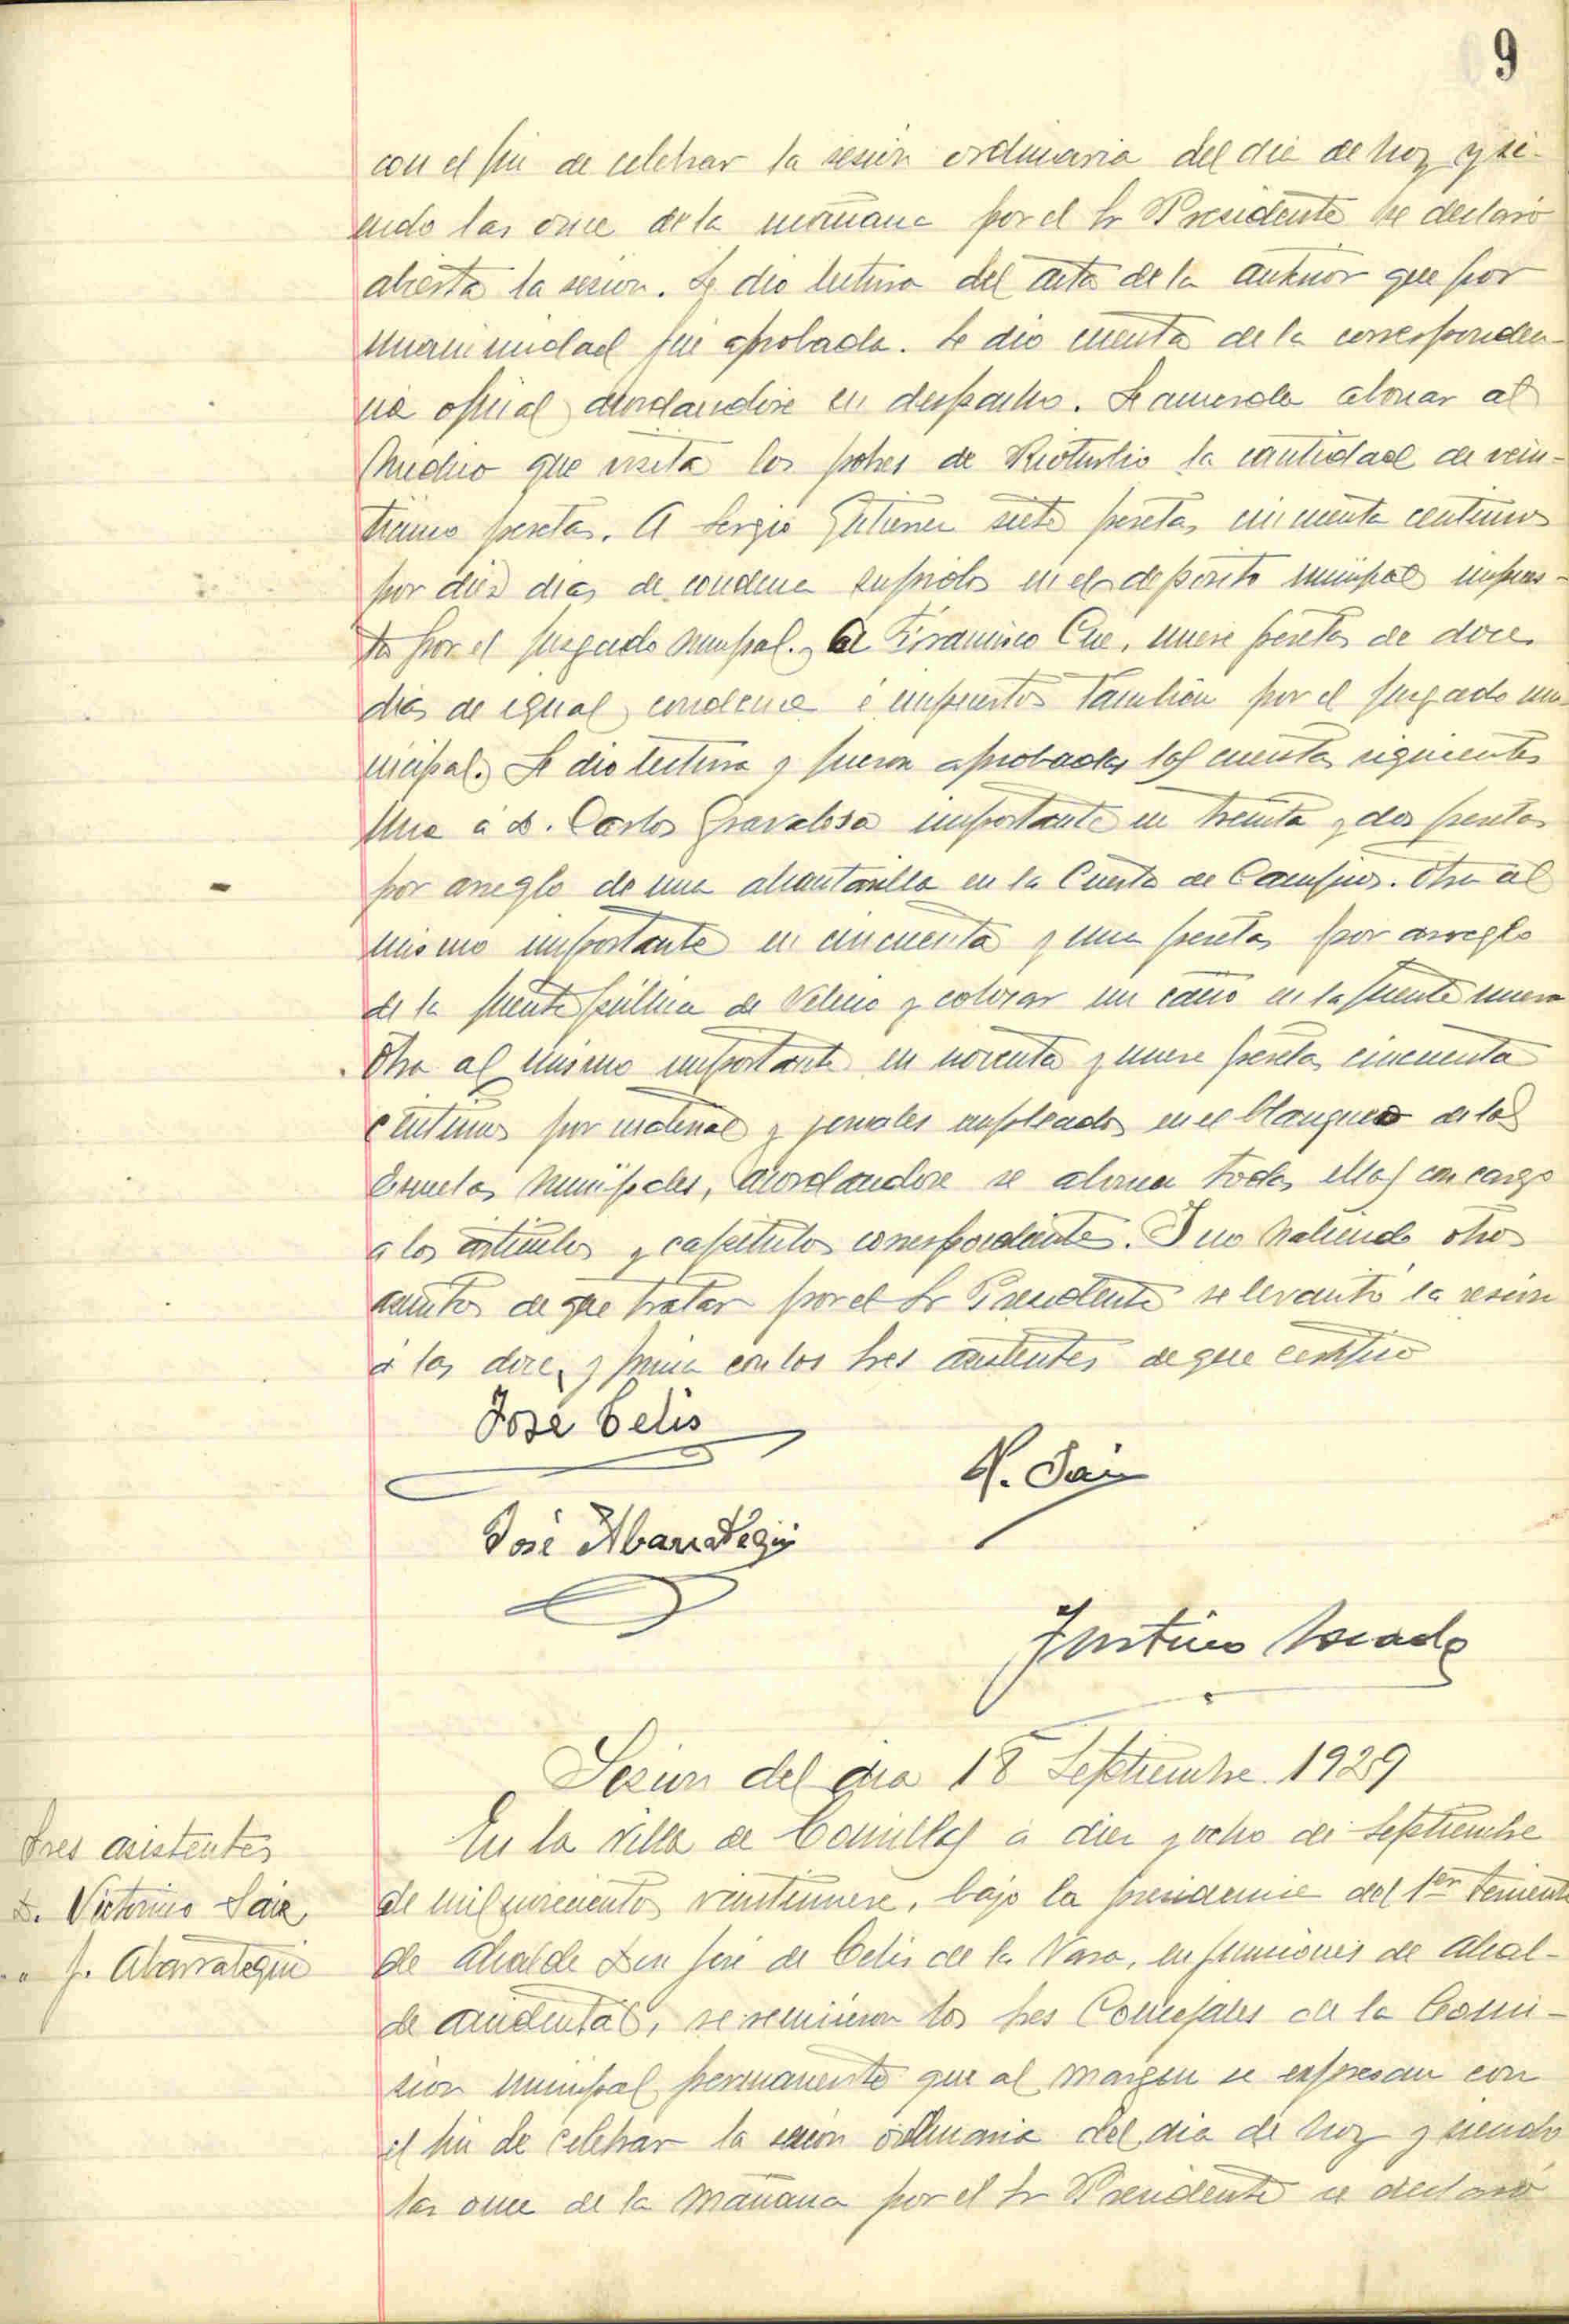 9
con el fin de celebrar la sesión ordinaria del dia de hoy y si-
endo las once de la mañana por el Sr Presidente se declaró
abierta la sesion. Se dio lectura del acta de la anterior que por
unanimidad fue aprobada. Se dio cuenta de la corresponden-
cia oficial acordandose su despacho. Se acuerda abonar al
Medico que visita los pobres de Rioturbio la cantidad de vein-
ticinco pesetas. A Sergio Gutierrez siete pesetas cincuenta centimos
por diez dias de condena sufridos en el deposito municipal impues-
ta por el juzgado municipal. A Francisco Cue, nueve pesetas de doce
dias de igual condena é impuestos tambien por el juzgado mu-
nicipal. Se dio lectura y fueron aprobadas las cuentas siguientes
Una á D. Carlos Gravalosa importante en treinta y dos pesetas
por arreglo de una alcantarilla en la Cuesta de Campios. Otra al
mismo importante en cincuenta y una pesetas por arreglo
de la fuente pública de Velecio y colocar un caño en la fuente nueva
Otra al mismo importante en noventa y nueve pesetas cincuenta
centimos por material y jornales empleados en el blanqueo de las
Escuelas Municipales, acordandose se abonen todas ellas con cargo
a los articulos y capitulos correspondientes. Y no habiendo otros
asuntos de que tratar por el Sr Presidente se levantó la sesion
á las doce, y firma con los Sres asistentes de que certifico
José Celis
V. Saiz
José Abarrategui
Justino
Sesion del dia 18 Septiembre 1929
Sres asistentes
D. Victorino Saiz
" J. Abarrategui
En la villa de Comillas á diez y ocho de Septiembre
de mil novecientos veintinueve, bajo la presidencia del 1er Teniente
de Alcalde Don José de Celis de la Vara, en funciones de Alcal-
de accidental, se reunieron los Sres Concejales de la Comi-
sion municipal permanente que al margen se expresan con
el fin de celebrar la sesion ordinaria del dia de hoy y siendo
las once de la mañana por el Sr Presidente se declaró